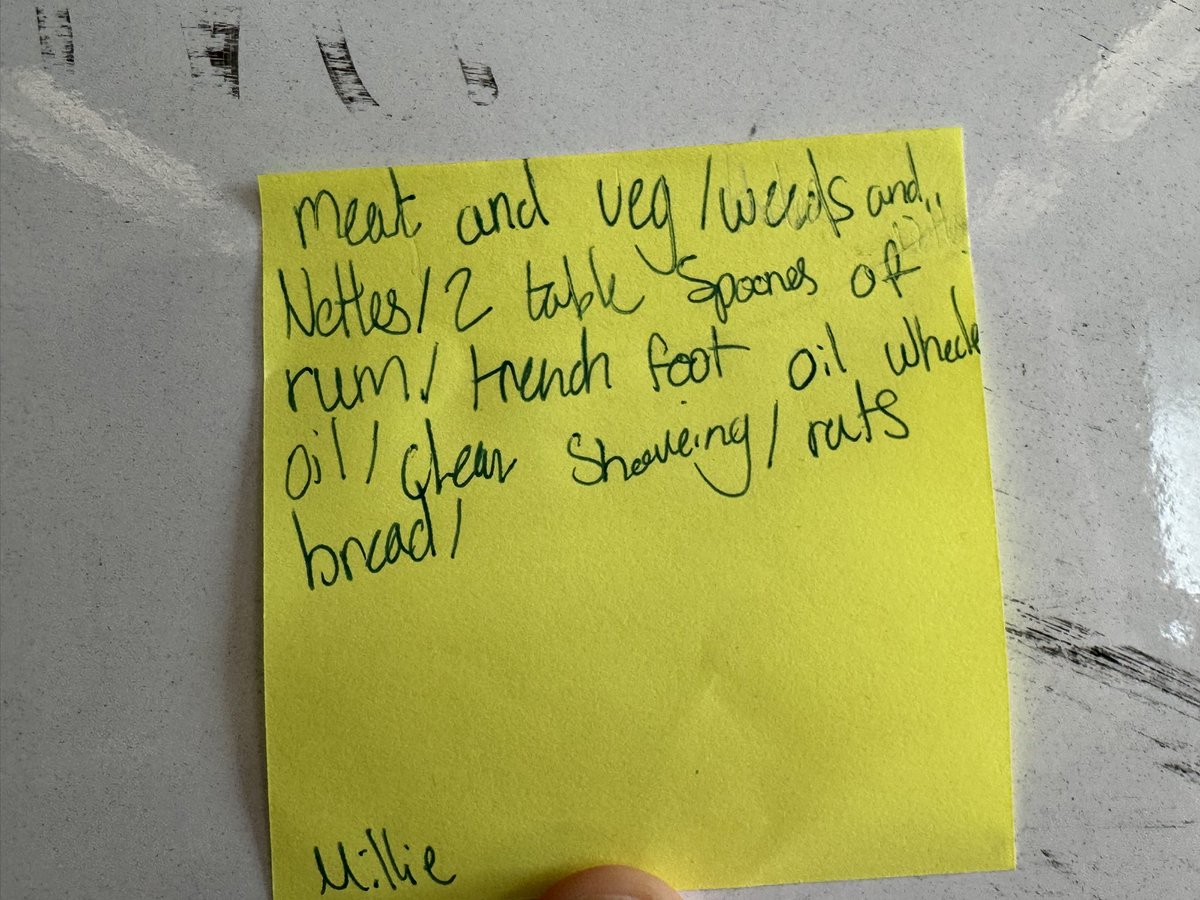 Meat and veg/weeds and
Nettles/2 table Spoones of
rum/trench foot oil whale
oil/clean Shaveing/rats
bread/
Millie